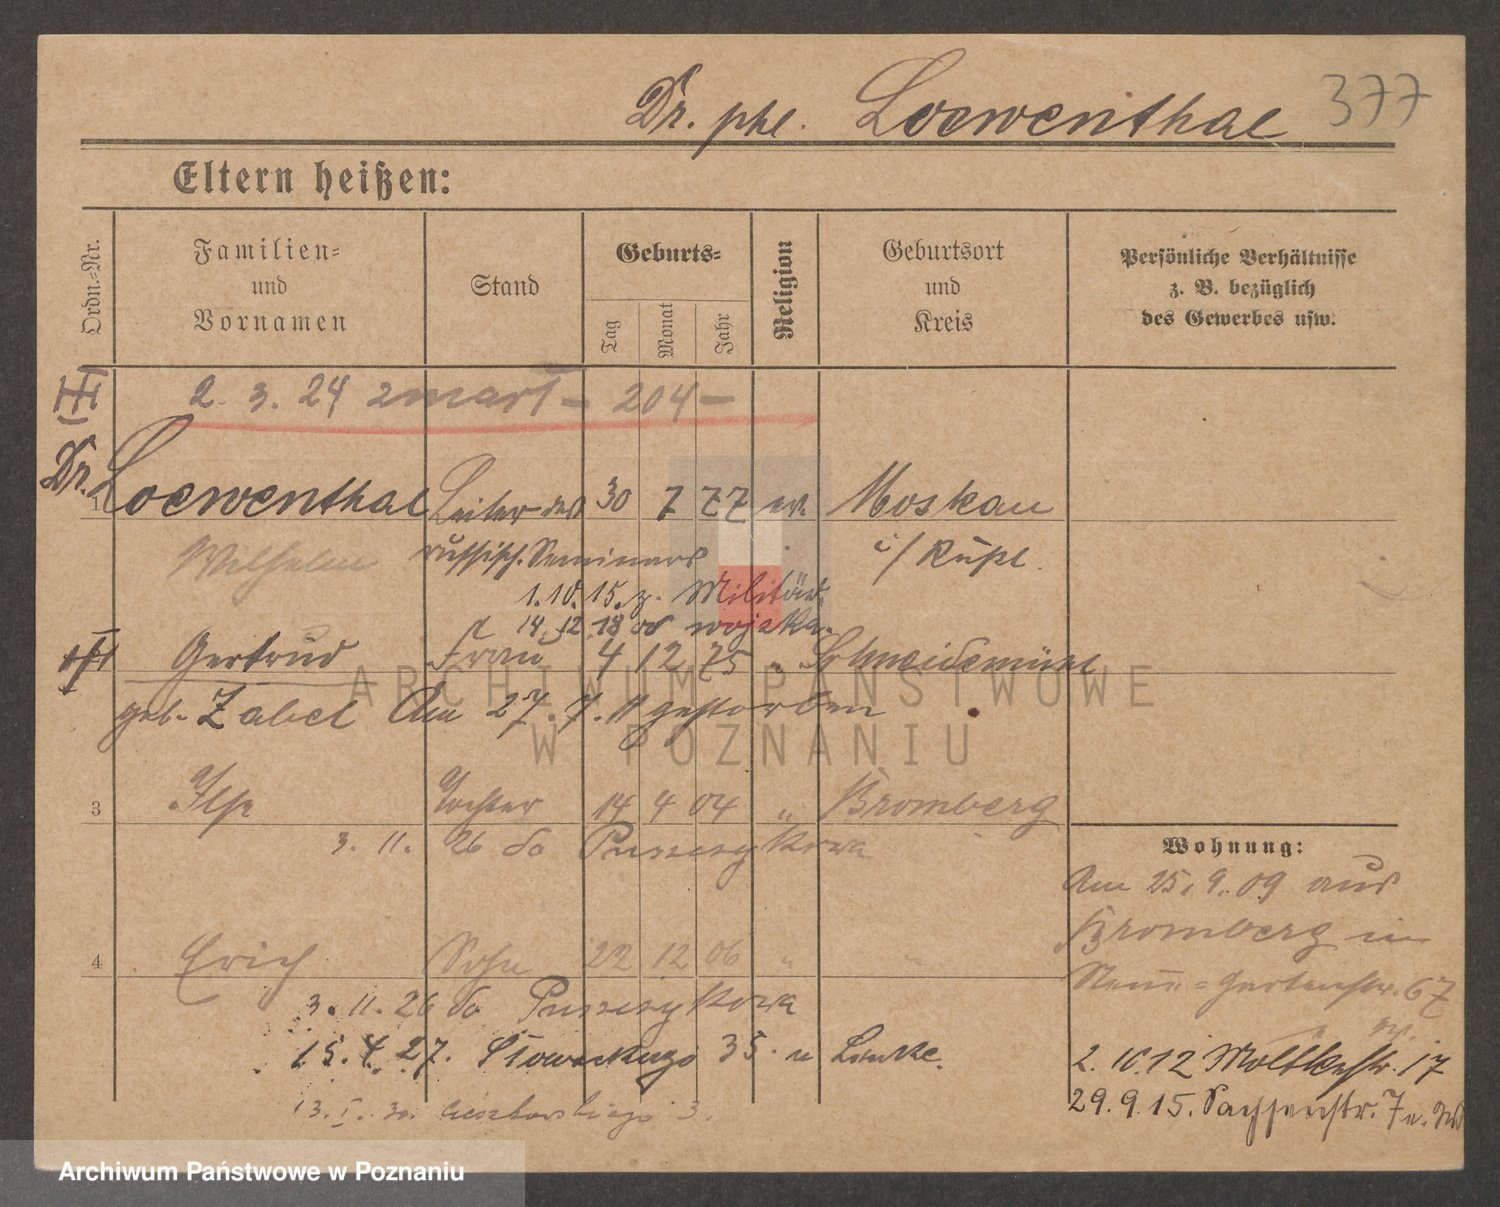 Dr. phl. Loewenthal 377
Eltern heißen:
Ordn.=Nr.
Familien=
und
Vornamen
Stand
Geburts=
Tag
Monat
Jahr
Religion
Geburtsort
und
Kreis
Persönliche Verhältnisse
z. B. bezüglich
des Gewerbes usw.
2. 3. 24 zmarł – 204 –
Dr. 1 Loewenthal Leiter des 30 7 77 ev. Moskau
Wilhelm russisch. Seminars i/Rußl.
1.10.15. z. Militär.
14.12.18 od wojska.
Gertrud Frau 4 12 75 „ Schneidemühl
geb. Zabel Am 27. 7. 11 gestorben
3 Ilse Tochter 14 4 04 „ Bromberg
3. 11. 26 do Puszczykowa
4 Erich Sohn 22 12 06 „ „
3. 11. 26 do Puszczykowa
15. 4. 27. Słowackiego 35. u
13. I. 30. 3.
Wohnung:
Am 25. 9. 09 aus
Bromberg in
Neue=Gartenstr. 67
2. 10. 12 Moltkestr. 17
29. 9. 15. Sachsenstr. 7
ARCHIWUM PAŃSTWOWE
W POZNANIU
Archiwum Państwowe w Poznaniu